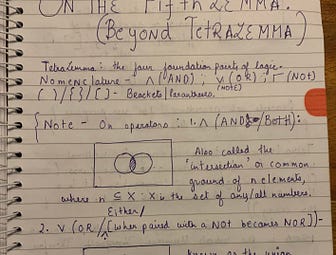 ON THE FifthLEMMA.
(Beyond TETRALEMMA)
TetraLemma : the four foundation parts of logic.
Nomenclature - ∧ (AND) ; ∨ (OR) ; Γ (NOT)
(NOTE)
( ) / { } / [ ] - Brackets / Parantheses.
{Note - On operators : 1. ∧ (AND / BOTH) :
Also called the
'intersection' or common
ground of n elements,
where n ⊆ X : X is the set of any/all numbers.
Either/
2. ∨ (OR / [when paired with a NOT becomes NOR]) -
known as the union